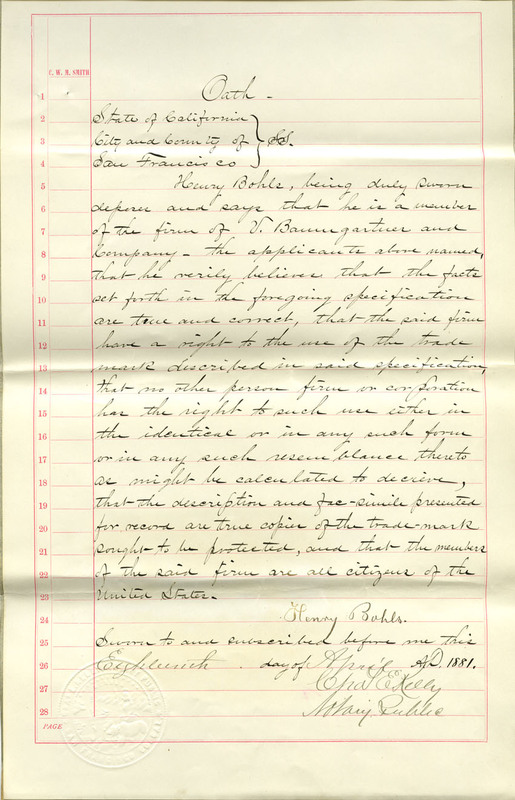 C. W. M. SMITH
1 Oath -
2 State of California
3 City and County of } SS.
4 San Francisco
5 Henry Bohls, being duly sworn
6 deposes and says that he is a member
7 of the firm of V. Baumgartner and
8 Company - the applicants above named,
9 that he verily believes that the facts
10 set forth in the foregoing specification
11 are true and correct, that the said firm
12 have a right to the use of the trade
13 mark described in said specification,
14 that no other person firm or corporation
15 has the right to such use either in
16 the identical or in any such form
17 or in any such resemblance thereto
18 as might be calculated to deceive,
19 that the description and fac-simile presented
20 for record are true copies of the trade-mark
21 sought to be protected, and that the members
22 of the said firm are all citizens of the
23 United States.
24 Henry Bohls.
25 Sworn to and subscribed before me this
26 day of April A.D. 1881.
27 Chas E Kelly
28 Notary Public
PAGE